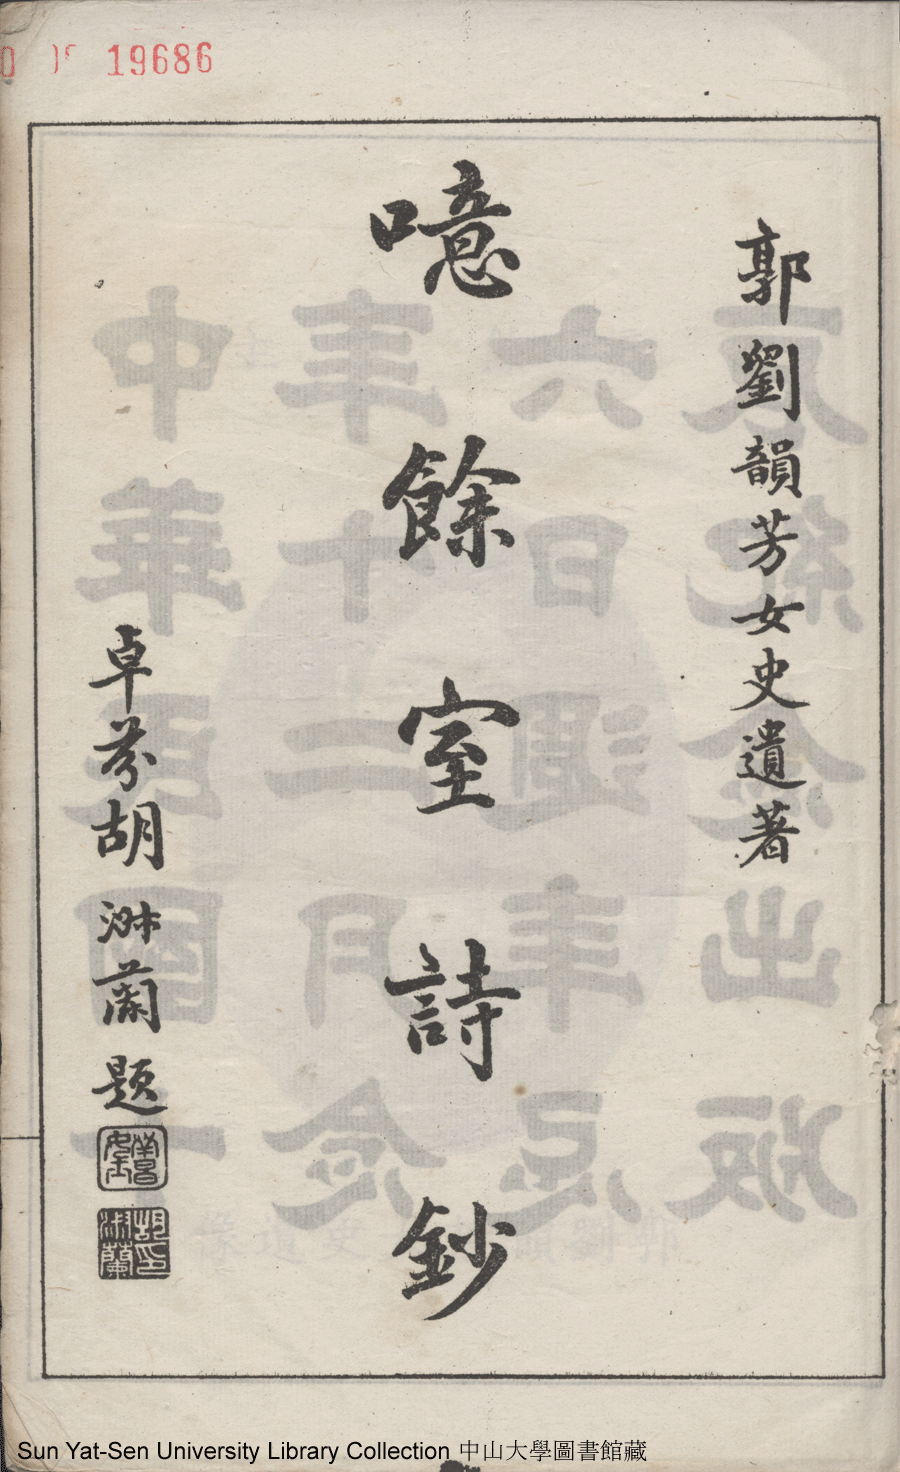 19686
郭劉韻芳女史遺著
噫餘室詩鈔
卓芬胡淋蘭題
Sun Yat-Sen University Library Collection 中山大學圖書館藏